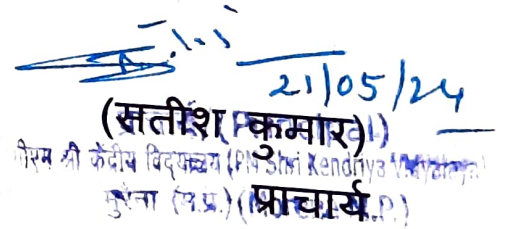 21/05/24
(सतीश कुमार)
पीएम श्री केंद्रीय विद्यालय (PM Shri Kendriya Vidyalaya)
मुरैना (म.प्र.) प्राचार्य M.P.)